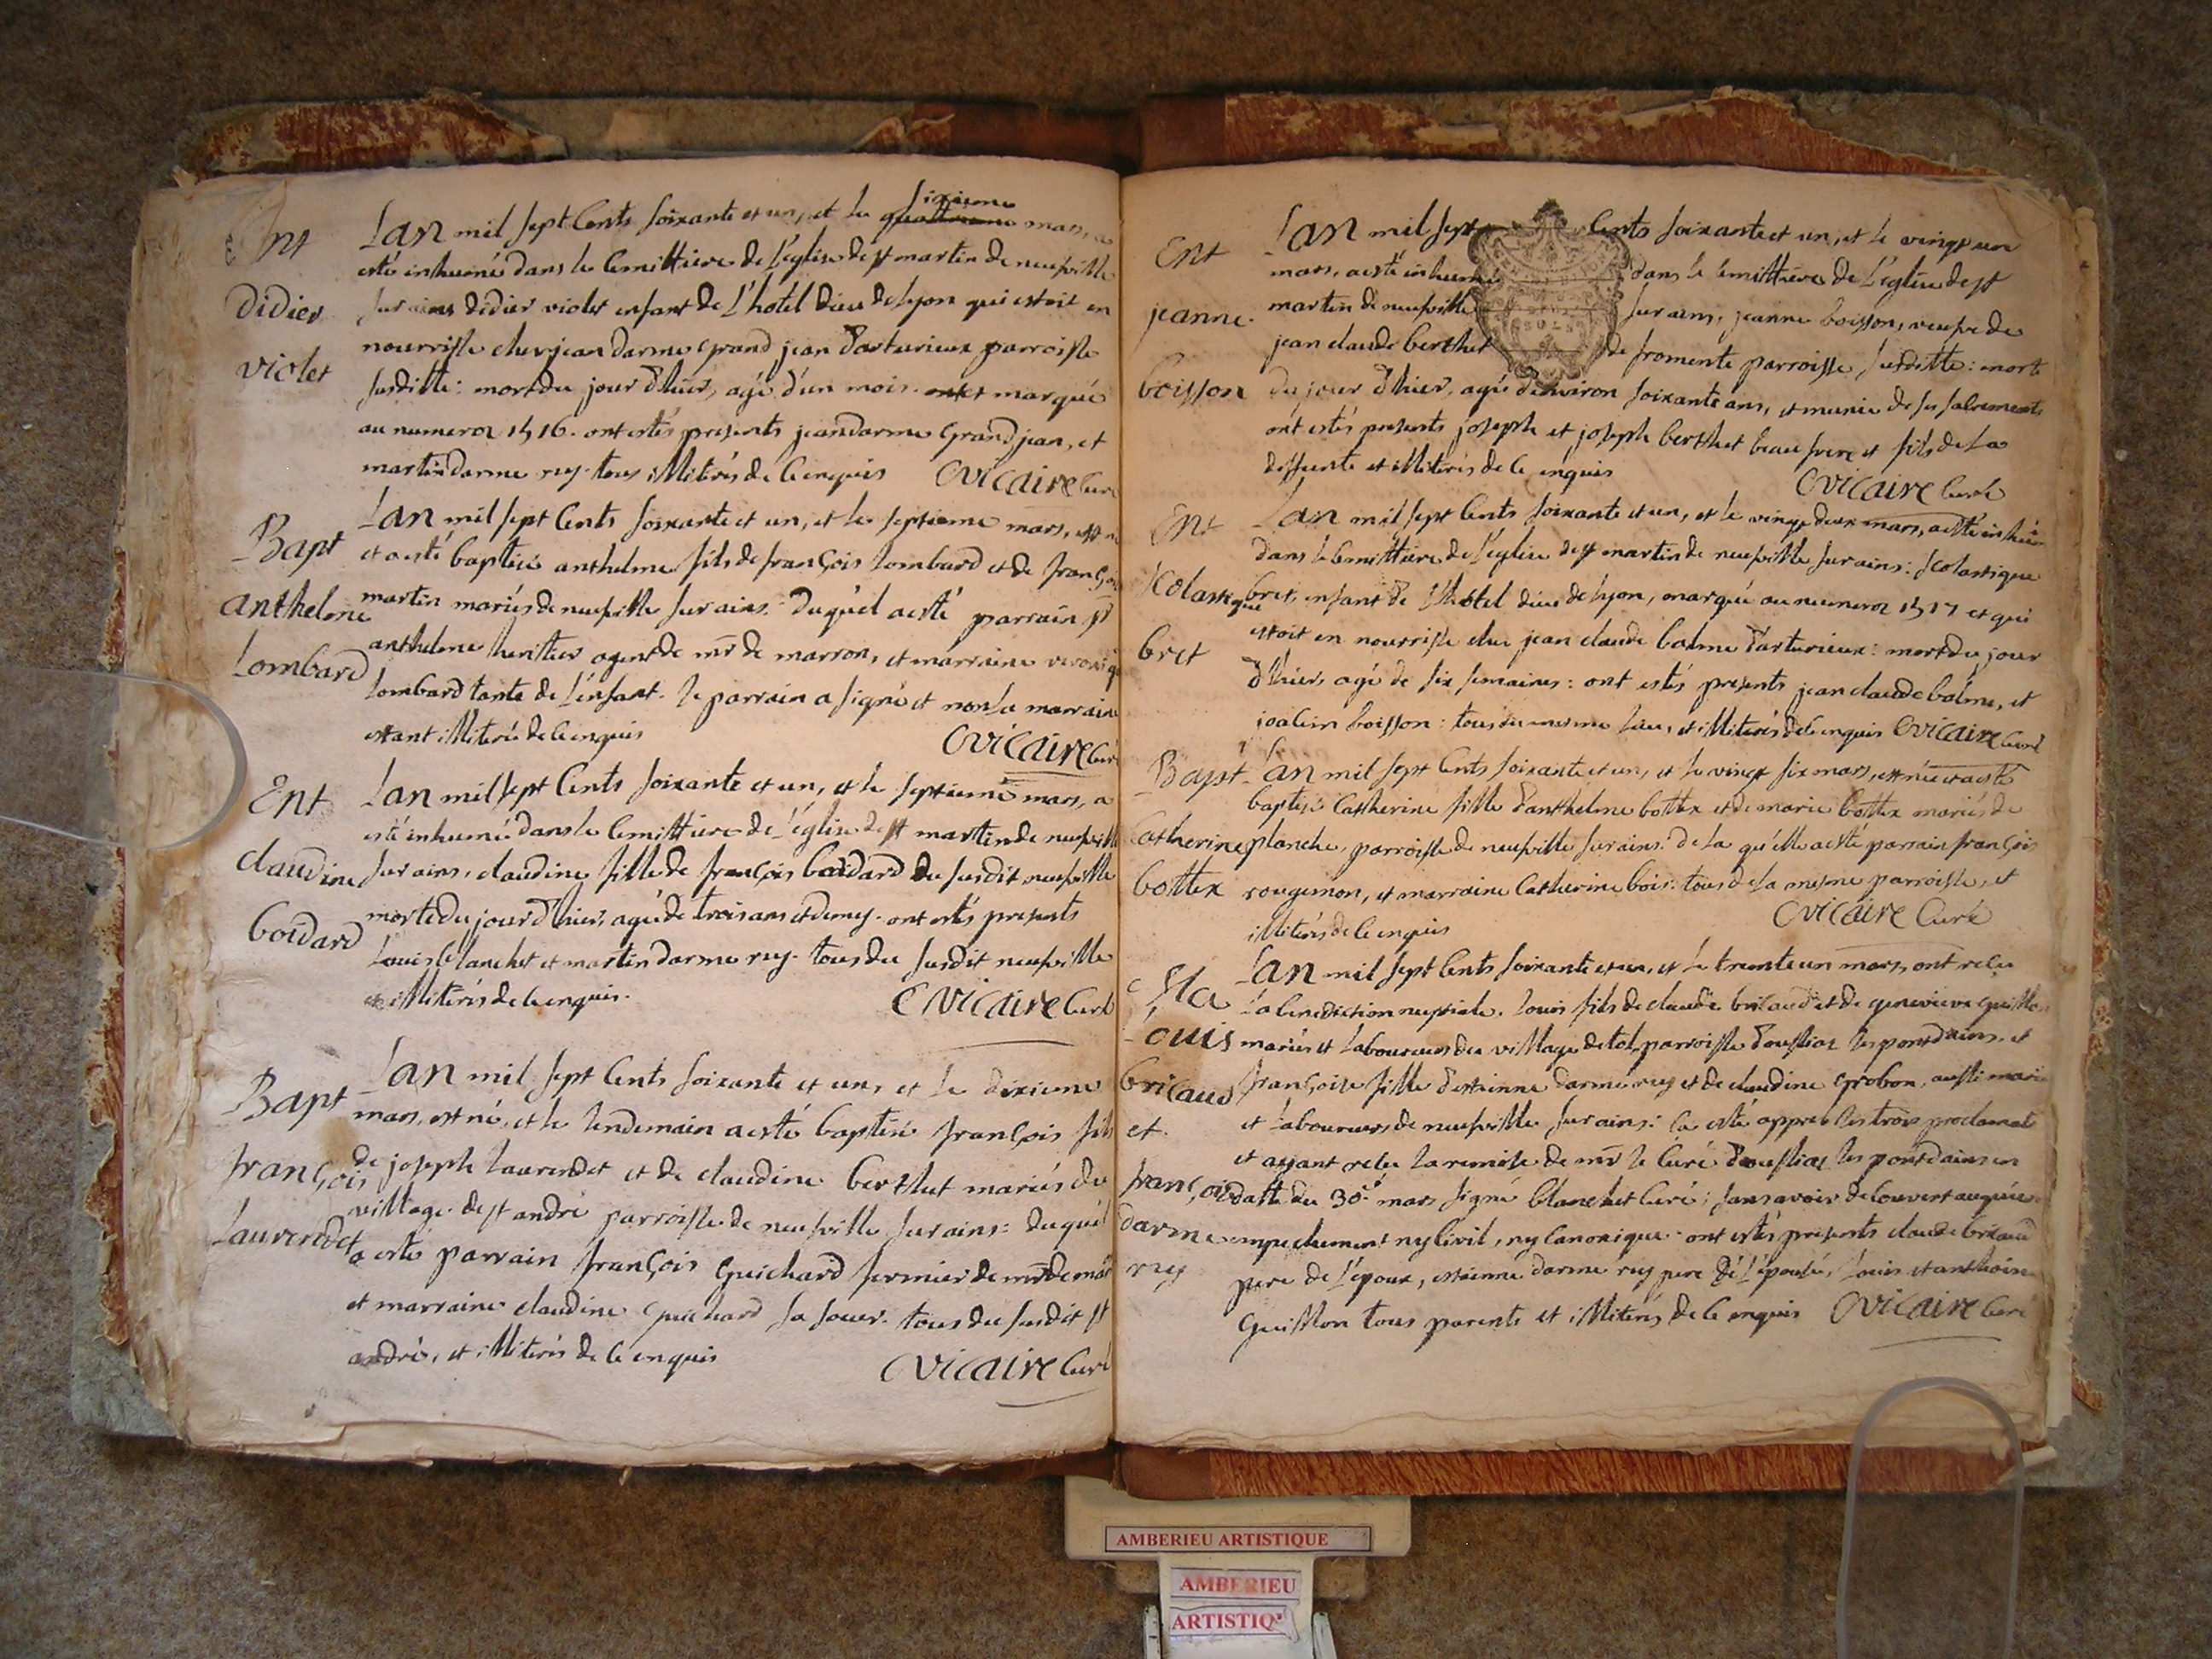 Ent
didier
violet
Lan mil sept Cents soixante et un, et le sixieme mars, a
esté inhumé dans le Cemittiere de L'eglise de st martin de neufville
sur ains didier violet enfant de L'hôtel dieu de Lyon qui estoit en
nourrisse chez jean darme grand jean d'arturieux parroisse
susditte: mort du jour d'hier, agé d'un mois et marqué
au numeror 1516. ont estés presents jean darme grand jean, et
martin darme rey. tous illiterés de Ce enquis Cvicaire Curé
Bapt
anthelme
Lombard
Lan mil sept Cents soixante et un, et le septieme mars, est né
et a esté baptisé anthelme fils de françois Lombard et de françoise
martin mariés de neufville sur ains. Duquel a esté parrain sr
anthelme heritier agent de mr de marron, et marraine veroniq
Lombard tante de L'enfant. Le parrain a signé et non la marraine
estant illiterée de Ce enquis Cvicaire Curé
Ent
claudine
boidard
Lan mil sept Cents soixante et un, et le septieme mars, a
esté inhumé dans le Cemittiere de L'eglise de st martin de neufville
sur ains, claudine fille de françois boidard du susdit neufville
morte du jour d'hier, agé de trois ans et demy. ont estés presents
Louis blanchet et martin darme rey. tous du susdit neufville
et illiterés de Ce enquis. Cvicaire Curé
Bapt
françois
Laurendet
Lan mil sept Cents soixante et un, et le dixieme
mars, est né, et le lendemain a esté baptisé françois fils
de joseph Laurendet et de claudine berthet mariés du
village de st andré parroisse de neufville sur ains: duquel
a esté parrain françois guichard fermier de mr de mar
et marraine claudine guichard sa soeur. tous du susdit st
andré, et illiterés de Ce enquis Cvicaire Curé
Ent
jeanne
boisson
Lan mil sept Cents soixante et un, et le vingt un
mars, a esté inhumée dans le Cemittiere de L'eglise de st
martin de neufville sur ains, jeanne boisson, veufve de
jean claude berthet de fromente parroisse susditte: morte
du jour d'hier, agée d'environ soixante ans, et munie de ses sacrements
ont estés presents joseph et joseph berthet beau frere et fils de La
deffunte et illiterés de Ce enquis Cvicaire Curé
Ent
scolastique
bret
Lan mil sept Cents soixante et un, et le vingt deux mars, a esté inhumé
dans le Cemittiere de L'eglise de st martin de neufville sur ains: scolastique
bret, enfant de L'hôtel dieu de Lyon, marqué au numeror 1517 et qui
estoit en nourrisse chez jean claude balme d'arturieux: mort du jour
d'hier, agé de six semaines: ont estés presents jean claude balme, et
joachin boisson: tous du mesme Lieu, et illiterés de Ce enquis Cvicaire Curé
Bapt
Catherine
bottex
Lan mil sept Cents soixante et un, et le vingt six mars, est née et a esté
baptisé Catherine fille d'anthelme bottex et de marie bottex mariés de
planche, parroisse de neufville sur ains. De la qu'elle a esté parrain françois
rougemon, et marraine Catherine bois: tous de La mesme parroisse, et
illiterés de Ce enquis Cvicaire Curé
Ma
Louis
bricaud
et
françoise
darme
rey
Lan mil sept Cents soixante et un, et le trente un mars, ont recu
La benediction nuptiale. Louis fils de claude bricaud et de genevieve guillon
mariés et Laboureurs du village de tol, parroisse d'oussiat les pontdains. et
françoise fille d'estienne darme rey et de claudine grobon, aussi mariés
et Laboureurs de neufville sur ains: Ce a esté appres Les trois proclamats
et ayant recu La remise de mr le Curé d'oussiat les pontdains en
datte du 30e mars signé blanchet Curé; sans avoir decouvert auqu'un
empechement ny Civil, ny Canonique. ont estés presents claude bricaud
pere de L'epoux, estienne darme rey pere de L'épouse, Louis et anthoine
guillon tous parents et illiterés de Ce enquis Cvicaire Curé
AMBERIEU ARTISTIQUE
AMBERIEU
ARTISTIQ